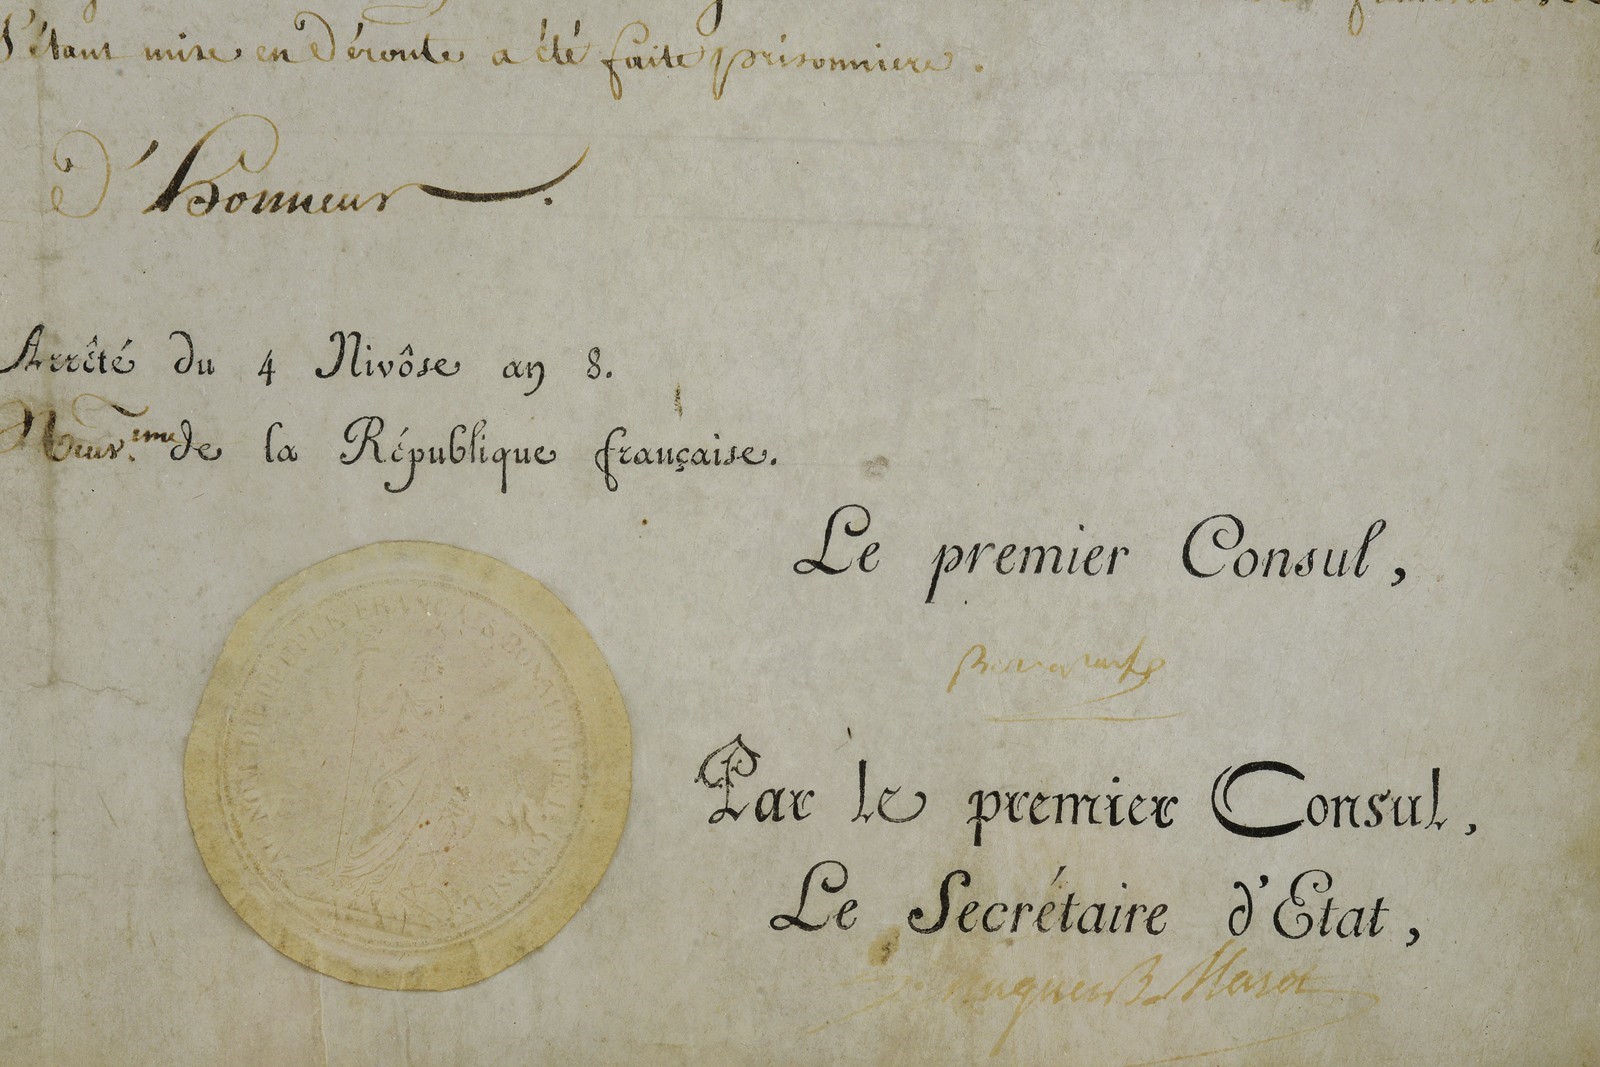 S'étant mise en Déroute a été faite prisonniere.
d'honneur.
Arrêté du 4 Nivôse an 8.
Neuv.eme de la République française.
Le premier Consul,
Bonaparte
Par le premier Consul,
Le Secrétaire d'Etat,
Hugues B. Maret
AU NOM DU PEUPLE FRANÇAIS BONAPARTE 1er CONSUL